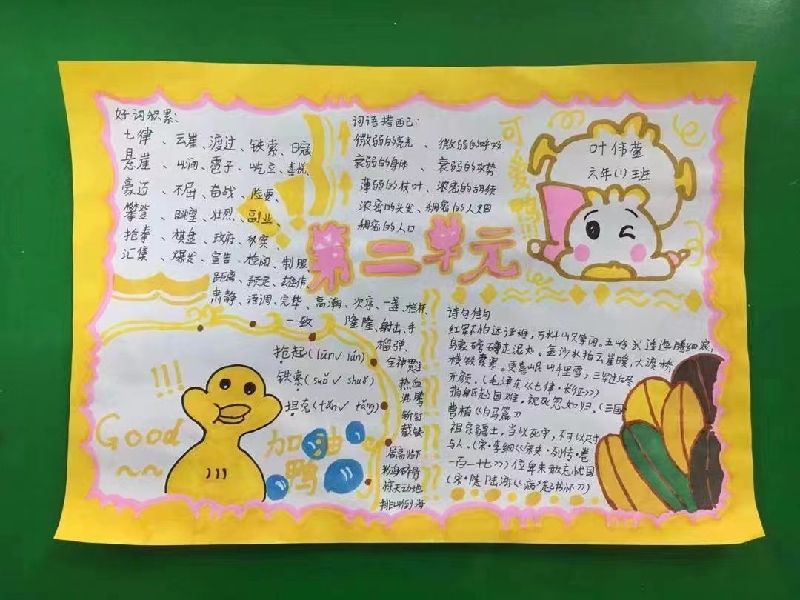 好词积累:
七律、云崖、渡过、铁索、日寇
悬崖、山涧、雹子、屹立、喜悦
豪迈、不屈、奋战、险要、
攀登、眺望、壮烈、副业、
抢夺、棋盘、政府、外宾、
汇集、爆发、宣告、检阅、制服、
距离、预定、雄伟、
肃静、语调、完毕、高潮、次序、一盏、
一致、隆隆、射出、手
榴弹、
全神贯注
热血
沸腾
斩钉
截铁
居高临下
粉身碎骨
惊天动地
排山倒海
词语搭配:
微弱的烛光、微弱的呼吸
衰弱的身体、衰弱的攻势
薄弱的
浓密的头发、稠密的人烟
稠密的人口
可爱鸭
叶伟萱
六年(1)班
第二单元
抢夺
铁索(suǒ√ shuǒ)
坦克(tǎn√ tǎng)
!!!
Good
~~
加油
鸭
诗句佳句
红军不怕远征难,万水千山只等闲。五岭逶迤腾细浪,
乌蒙磅礴走泥丸。金沙水拍云崖暖,大渡桥
横铁索寒。更喜岷山千里雪,三军过后尽
开颜。(毛泽东《七律·长征》)
捐躯赴国难,视死忽如归。(三国
曹植《白马篇》)
祖宗疆土,当以死守,不可以尺寸
与人。(宋·李纲《宋史·列传·卷
一百一十七》)位卑未敢忘忧国
(宋·陆游《病起书怀》)